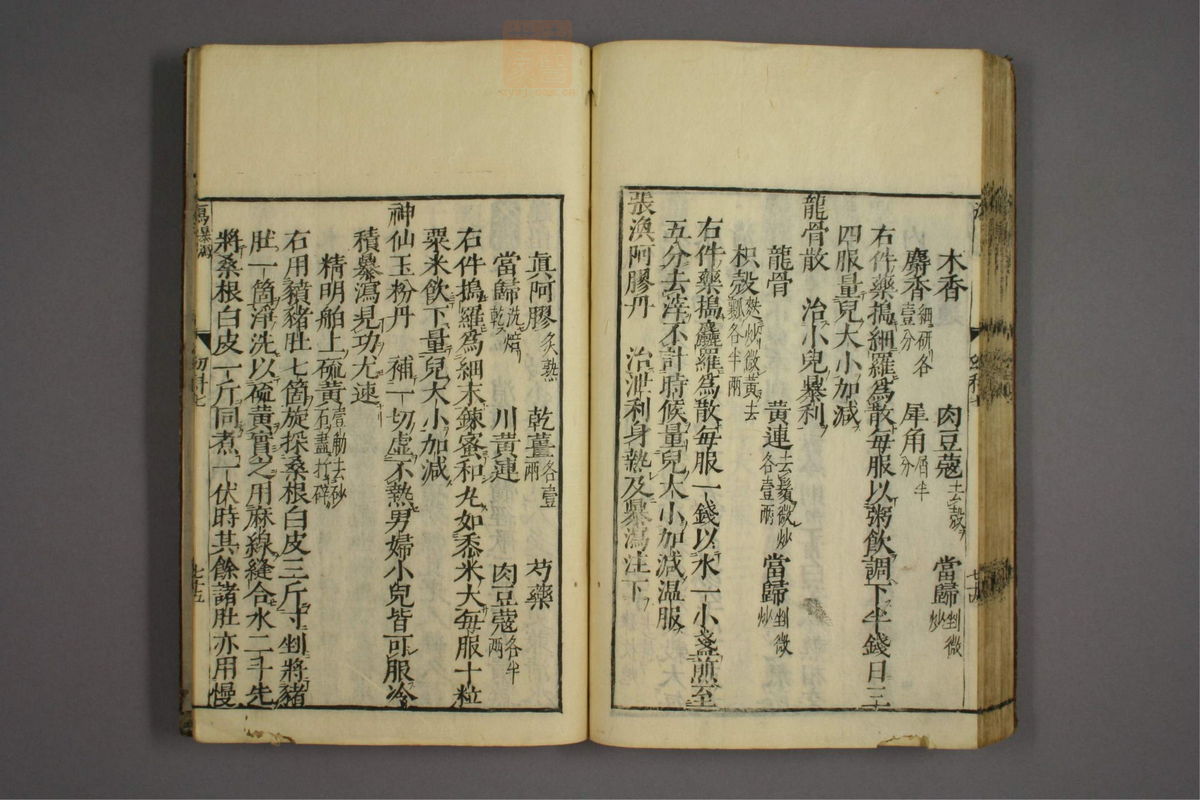 木香 肉豆蔻去殼 當歸剉微炒
麝香細研各壹分 犀角屑半分
右件藥搗細羅爲散每服以粥飲調下半錢日三
四服量兒大小加減
龍骨散 治小兒暴利
龍骨 黃連去鬚微炒各壹兩 當歸剉微炒
枳殼麩炒微黃去瓤各半兩
右件藥搗麤羅爲散每服一錢以水一小盞煎至
五分去滓不計時候量兒大小加減溫服
張渙阿膠丹 治泄利身熱及暴瀉注下
幼科七
七十四
眞阿膠炙熟 乾薑各壹兩 芍藥
當歸洗焙乾 川黃連 肉豆蔻各半兩
右件搗羅爲細末鍊蜜和丸如黍米大每服十粒
粟米飲下量兒大小加減
神仙玉粉丹 補一切虛不熱男婦小兒皆可服冷
積暴瀉見功尤速
精明舶上硫黃壹觔去砂石盡打碎
右用豶豬肚七箇旋採桑根白皮三斤寸剉將豬
肚一箇淨洗以硫黃實之用麻線縫合水二斗先
將桑根白皮一斤同煮一伏時其餘諸肚亦用慢
爲暴瀉
幼科七
七十五